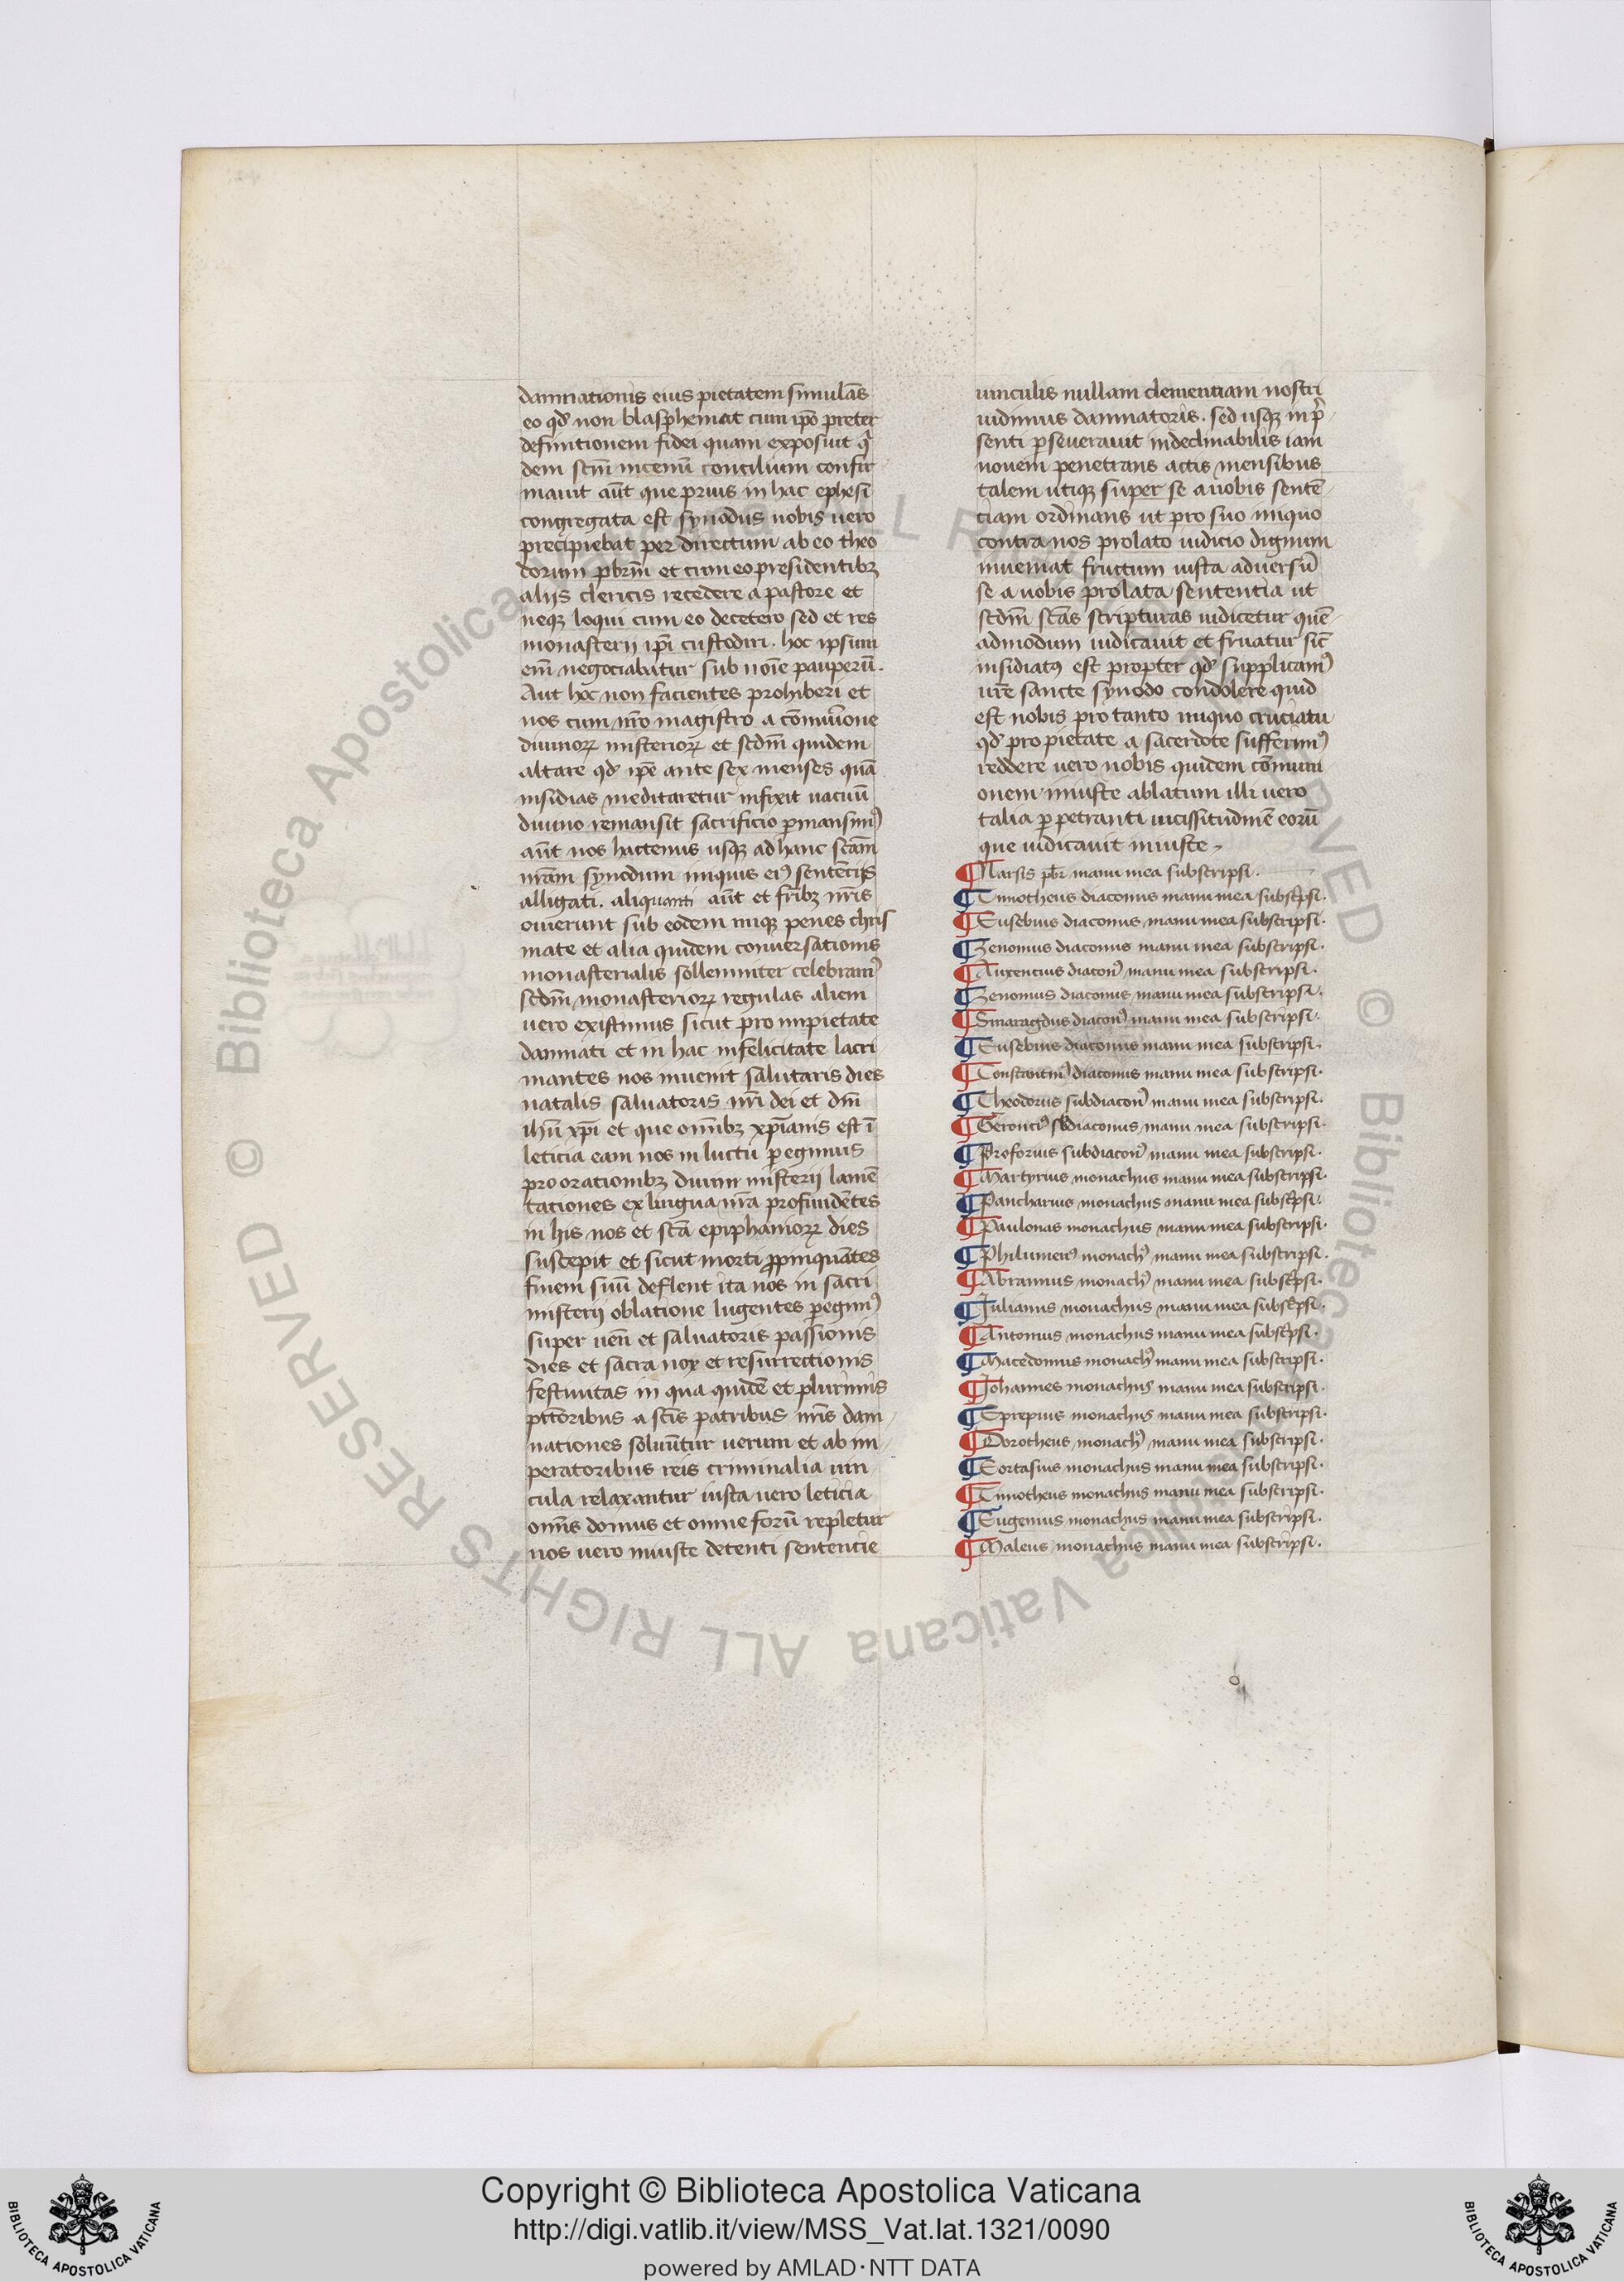 damnationis eius pietatem simulās
eo qđ non blasphemat cum ip̄o preter
definitionem fidei quam exposuit q̄
dem scm̄ nicenū concilium confir
mauit aūt que prius in hac ephesi
congregata est synodus uobis uero
precipiebat per directum ab eo theo
dorum pbrm̄ et cum eo presidentibꝫ
alijs clericis recedere a pastore et
neqꝫ loqui cum eo decetero sed et res
monasterij ip̄i custodiri. hoc ipsum
em̄ negociabatur sub noīe pauperū.
Aut hoc non facientes prohiberi et
nos cum nr̄o magistro a cōmun̄ione
diuinoꝝ misterioꝝ et scdm̄ quidem
altare qđ ip̄e ante sex menses quā
insidias meditaretur infixit uacuū
diuino remansit sacrificio ꝑmansimꝰ
aūt nos hactenus usqꝫ ad hanc scām
nr̄am synodum iniquis eiꝰ sentencijs
alligati. aliquanti aūt et fr̄ibꝫ nr̄is
ouierunt sub eodem iniqꝫ penes chris
mate et alia quidem conuersationis
monasterialis sollemniter celebramꝰ
scdm̄ monasterioꝝ regulas alieni
uero existimus sicut pro impietate
damnati et in hac infelicitate lacri
mantes nos inuenit salutaris dies
natalis saluatoris nr̄i dei et dn̄i
ihū xp̄i et que omībꝫ xp̄ianis est ī
leticia eam nos in luctu ꝑegimus
pro orationibꝫ diuini misterij lamē
tationes ex lingua nr̄a profundētes
in his nos et scā epiphanioꝝ dies
suscepit et sicut morti ꝓpinquātes
finem suū deflent ita nos in sacri
misterij oblatione lugentes ꝑegimꝰ
super uen̄ et saluatoris passionis
dies et sacra nox et resurrectionis
festiuitas in qua quidē et plurimis
pctōribus a scīs patribus nr̄is dam
nationes soluūtur uerum et ab im
peratoribus reis criminalia uin
cula relaxantur iusta uero leticia
omīs domus et omne forū repletur
nos uero iniuste detenti sentencie
uinculis nullam clementiam nostri
uidimus damnatoris. sed usqꝫ in p̄
senti ꝑseuerauit indeclinabilis iam
nouem penetrans actis mensibus
talem utiqꝫ super se a uobis sentē
ciam ordinans ut pro suo iniquo
contra nos prolato iudicio dignum
inueniat fructum iusta aduersū
se a uobis prolata sententia ut
scdm̄ scās scripturas iudicetur quē
admodum iudicauit et fruatur sic̄
insidiatꝰ est propter qđ supplicamꝰ
ur̄e sancte synodo condolere quid
est nobis pro tanto iniquo cruciatu
qđ pro pietate a sacerdote sufferimꝰ
reddere uero nobis quidem cōmuni
onem iniuste ablatum illi uero
talia ꝑpetranti uicissitudinē eorū
que iudicauit iniuste
¶ Narsis pbr̄ manu mea subscripsi.
¶ Timotheus diaconus manu mea subsc̄psi.
¶ Eusebius diaconus manu mea subscripsi.
¶ Zenonius diaconus manu mea subscripsi.
¶ Auxencius diaconꝰ manu mea subscripsi.
¶ Zenonius diaconus manu mea subscripsi.
¶ Smaragdus diaconꝰ manu mea subscripsi.
¶ Eusebius diaconus manu mea subscripsi.
¶ Constantinꝰ diaconus manu mea subscripsi.
¶ Theodorus subdiaconꝰ manu mea subscripsi.
¶ Gerontiꝰ sbdiaconus manu mea subscripsi.
¶ Proforius subdiaconꝰ manu mea subscripsi.
¶ Martyrius monachus manu mea subscripsi.
¶ Pancharius monachus manu mea subsc̄psi.
¶ Paulonas monachus manu mea subscripsi.
¶ Philumenꝰ monachꝰ manu mea subscripsi.
¶ Abramius monachꝰ manu mea subsc̄psi.
¶ Iulianus monachus manu mea subsc̄psi.
¶ Antonius monachus manu mea subsc̄psi.
¶ Macedonius monachꝰ manu mea subscripsi.
¶ Iohannes monachus manu mea subscripsi.
¶ Eprepius monachus manu mea subscripsi.
¶ Dorotheus monachꝰ manu mea subscripsi.
¶ Eortasius monachus manu mea subscripsi.
¶ Timotheus monachus manu mea subscripsi.
¶ Eugenius monachus manu mea subscripsi.
¶ Maleus monachus manu mea subscripsi.
© Biblioteca Apostolica Vaticana ALL RIGHTS RESERVED © Biblioteca Apostolica Vaticana ALL RIGHTS RESERVED
Copyright © Biblioteca Apostolica Vaticana
http://digi.vatlib.it/view/MSS_Vat.lat.1321/0090
powered by AMLAD·NTT DATA
BIBLIOTECA APOSTOLICA VATICANA
BIBLIOTECA APOSTOLICA VATICANA